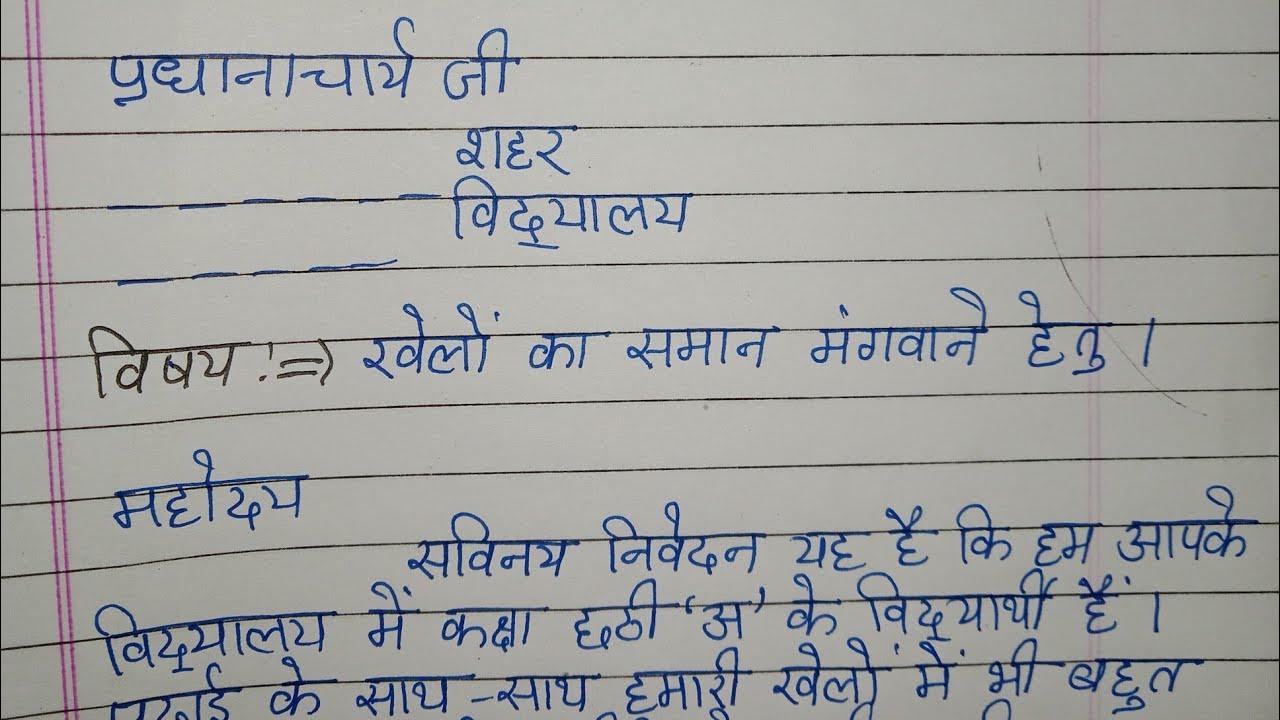 प्रधानाचार्य जी
शहर
विद्यालय
विषय :⇒ खेलों का समान मंगवाने हेतु ।
महोदय
सविनय निवेदन यह है कि हम आपके
विद्यालय में कक्षा छठी 'अ' के विद्यार्थी हैं ।
पढाई के साथ-साथ हमारी खेलों में भी बहुत